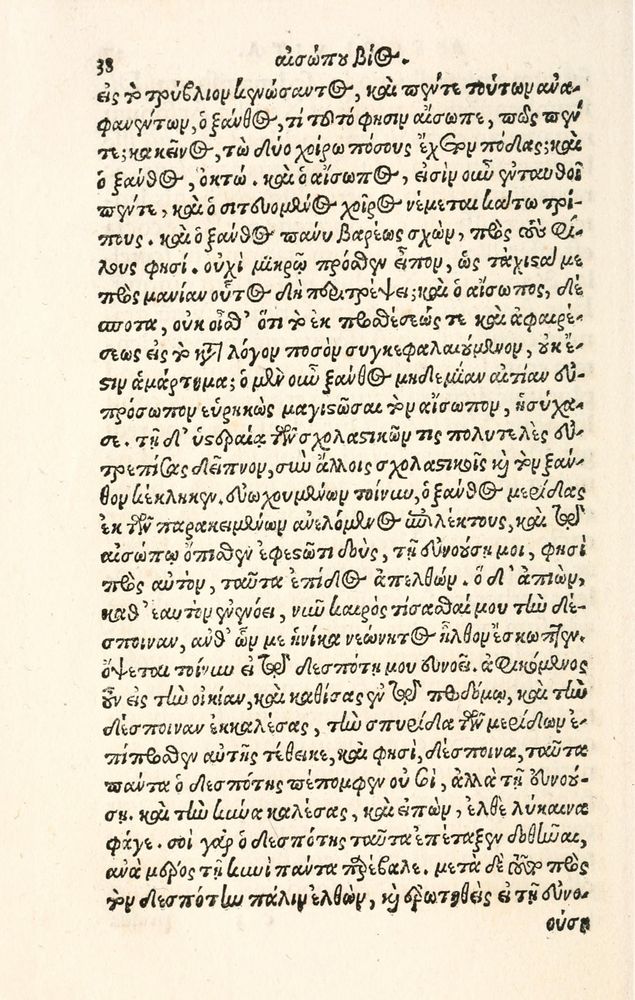 38 αἰσώπου βίος.
εἰς τὸ τρύβλιον κενώσαντος, καὶ πέντε τούτων ἀνα-
φανέντων, ὁ ξάνθος, τί τοῦτό φησιν αἴσωπε, πῶς πέν
τε; κἀκεῖνος, τὼ δύο χοίρω πόσους ἔχετον πόδας; καὶ
ὁ ξάνθος, ὀκτώ. καὶ ὁ αἴσωπος, εἰσὶν οὖν ἐνταυθοῖ
πέντε, καὶ ὁ σιτευόμενος χοῖρος νέμεται κάτω τρί-
πους. καὶ ὁ ξάνθος πάνυ βαρέως σχὼν, πρὸς τοὺς φί-
λους φησί. οὐχὶ μικρῷ πρόσθεν εἶπον, ὡς τάχιστά με
πρὸς μανίαν οὗτος δὴ περιτρέψει; καὶ ὁ αἴσωπος, δέ
σποτα, οὐκ οἶσθ' ὅτι τὸ ἐκ προσθέσεώς τε καὶ ἀφαιρέ-
σεως εἰς τὸ κατὰ λόγον ποσὸν συγκεφαλαιούμενον, οὐκ ἔ-
στιν ἁμάρτημα; ὁ μὲν οὖν ξάνθος μηδεμίαν αἰτίαν εὐ-
πρόσωπον εὑρηκὼς μαστιγῶσαι τὸν αἴσωπον, ἡσύχα-
σε. τῇ δ' ὑστεραίᾳ τῶν σχολαστικῶν τις πολυτελὲς εὐ-
τρεπίσας δεῖπνον, σὺν ἄλλοις σχολαστικοῖς καὶ τὸν ξάν-
θον κέκληκεν. εὐωχουμένων τοίνυν, ὁ ξάνθος μερίδας
ἐκ τῶν παρακειμένων ἀνελόμενος ἐπιλέκτους, καὶ τῷ
αἰσώπῳ ὄπισθεν ἐφεστῶτι δοὺς, τῇ εὐνούσῃ μοι, φησὶ
πρὸς αὐτὸν, ταῦτα ἐπίδος ἀπελθών. ὁ δ' ἀπιὼν,
καθ' ἑαυτὸν ἐνενόει, νῦν καιρὸς τίσασθαί μου τὴν δέ-
σποιναν, ἀνθ' ὧν με ἡνίκα νεώνητος ἦλθον ἔσκωπτεν.
ὄψεται τοίνυν εἰ τῷ δεσπότῃ μου εὐνοεῖ. ἀφικόμενος
οὖν εἰς τὴν οἰκίαν, καὶ καθίσας ἐν τῷ προδόμῳ, καὶ τὴν
δέσποιναν ἐκκαλέσας, τὴν σπυρίδα τῶν μερίδων ἔ-
πίπροσθεν αὐτῆς τέθεικε, καὶ φησὶ, δέσποινα, ταῦτα
πάντα ὁ δεσπότης πέπομφεν οὐ σοὶ, ἀλλὰ τῇ εὐνού-
σῃ. καὶ τὴν κύνα καλέσας, καὶ εἰπὼν, ἐλθὲ λύκαινα
φάγε. σοὶ γὰρ ὁ δεσπότης ταῦτα ἐπέταξεν δοθῆναι,
ἀνὰ μέρος τῇ κυνὶ πάντα παρέβαλε. μετὰ δὲ τοῦτο πρὸς
τὸν δεσπότην πάλιν ἐλθὼν, καὶ ἐρωτηθεὶς εἰ τῇ εὐνο-
ούσῃ